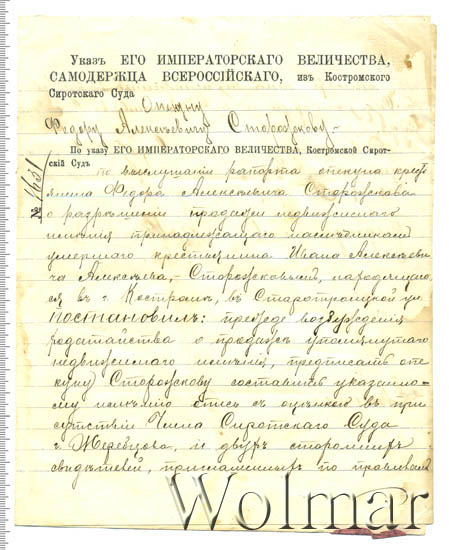 Указъ ЕГО ИМПЕРАТОРСКАГО ВЕЛИЧЕСТВА,
САМОДЕРЖЦА ВСЕРОССІЙСКАГО, изъ Костромского
Сиротскаго Суда
Опекуну
Федору Алексѣевичу Сторожкову.
По указу ЕГО ИМПЕРАТОРСКАГО ВЕЛИЧЕСТВА, Костромской Сирот-
скій Судъ
№ 1631
по выслушаніи рапорта опекуна крест
янина Федора Алексѣевича Сторожкова
о разрѣшеніи продажи недвижимаго
имѣнія принадлежащаго наслѣдникамъ
умершаго крестьянина Ивана Алексѣеви
ча Алексѣева,-Сторожковымъ, находящаго
ся въ г. Костромѣ, въ Старотроицкой ул
постановилъ: прежде возбужденія
ходатайства о продажѣ упомянутаго
недвижимаго имѣнія, предписать опе
куну Сторожкову составить указанно-
му имѣнію опись съ оцѣнкою въ при
сутствіи Члена Сиротскаго Суда
г. Жеребцова, и двухъ стороннихъ
свидѣтелей, приглашенныхъ по
Wolmar